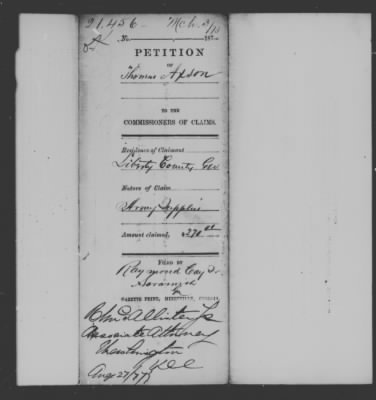 21,456 - Mch 3/73
No. 187
PETITION
OF
Thomas Axson
TO THE
COMMISSIONERS OF CLAIMS.
Residence of Claimant
Liberty County Geo
Nature of Claim
Army Supplies
Amount claimed, $270
FILED BY
Raymond Cay Jr.
Savannah
GAZETTE PRINT, HINESVILLE, GEORGIA.
Associate Attorney
Washington
D.C.
Aug 27/73